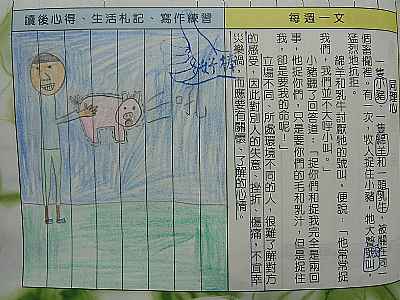 讀後心得、生活札記、寫作練習
每週一文
同理心
一隻小豬、一隻綿羊和一頭乳牛，被關在同
個畜欄裡。有一次，牧人捉住小豬，牠大聲號叫，
猛烈地抗拒。
綿羊和乳牛討厭牠的號叫，便說：「他常常捉
我們，我們並不大呼小叫。」
小豬聽了回答道：「捉你們和捉我完全是兩回
事，他捉你們，只是要你們的毛和乳汁，但是捉住
我，卻是要我的命呢！」
立場不同、所處環境不同的人，很難了解對方
的感受，因此對別人的失意、挫折、傷痛，不宜幸
災樂禍，而應要有關懷、了解的心情。